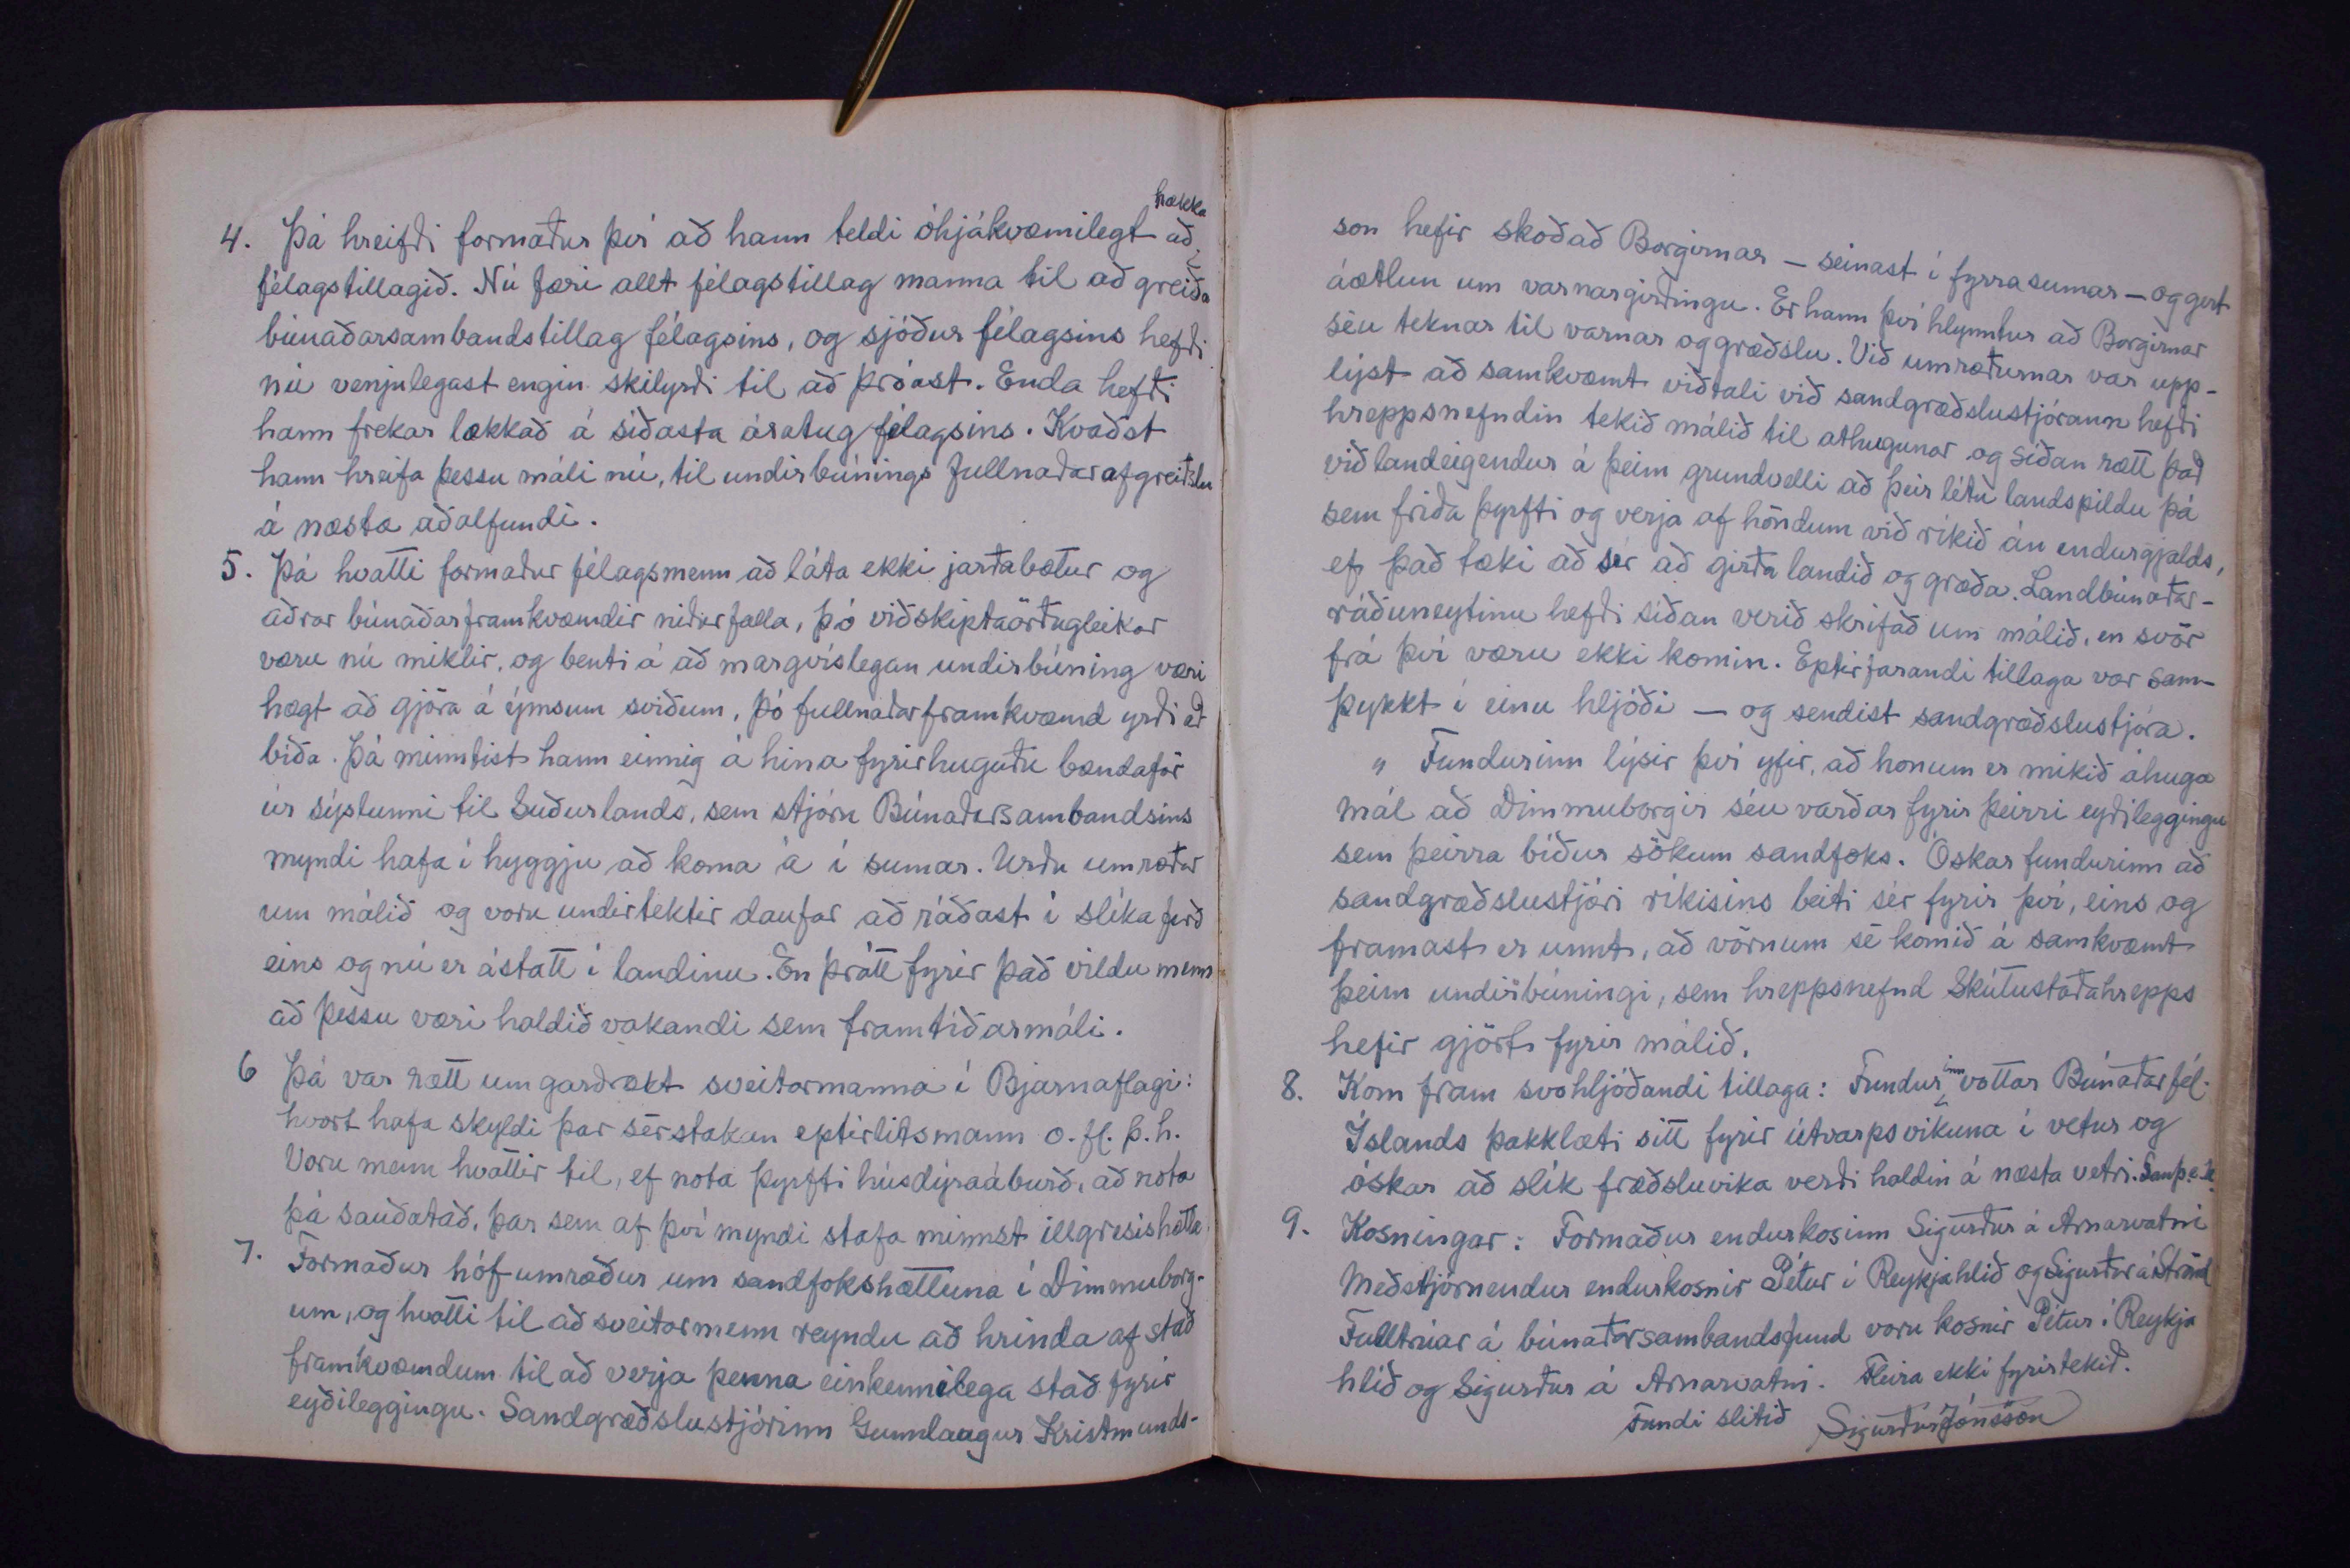 4. Þá hreifði formaður því að hann teldi óhjákvæmilegt að hækka
félagstillagið. Nú færi allt félagstillag manna til að greiða
búnaðarsambandstillag félagsins, og sjóður félagsins hefði
nú venjulegast engin skilyrði til að þróast. Enda hefði
hann frekar lækkað á síðasta áratug félagsins. Kvaðst
hann hreifa þessu máli nú, til undirbúnings fullnaðarafgreiðslu
á næsta aðalfundi.
5. Þá hvatti formaður félagsmenn að láta ekki jarðabætur og
aðrar búnaðarframkvæmdir niðurfalla, þó viðskiptaörðugleikar
væru nú miklir, og benti á að margvíslegan undirbúning væri
hægt að gjöra á ýmsum sviðum, þó fullnaðarframkvæmd yrði að
bíða. Þá minntist hann einnig á hina fyrirhuguðu bændaför
úr sýslunni til Suðurlands, sem stjórn Búnaðarsambandsins
myndi hafa í hyggju að koma á í sumar. Urðu umræður
um málið og voru undirtektir daufar að ráðast í slíka ferð
eins og nú er ástatt í landinu. En þrátt fyrir það vildu menn
að þessu væri haldið vakandi sem framtíðarmáli.
6 Þá var rætt um garðrækt sveitarmanna í Bjarnaflagi:
hvort hafa skyldi þar sérstakan eptirlitsmann o.fl. þ.h.
Voru menn hvattir til, ef nota þyrfti húsdýraáburð, að nota
þá sauðatað, þar sem af því myndi stafa minnst illgresishætta.
7. Formaður hóf umræður um sandfokshættuna í Dimmuborg-
um, og hvatti til að sveitarmenn reyndu að hrinda af stað
framkvæmdum til að verja þenna einkennilega stað fyrir
eyðileggingu. Sandgræðslustjórinn Gunnlaugur Kristmunds-
son hefir skoðað Borgirnar – seinast í fyrrasumar – og gert
áætlun um varnargirðingu. Er hann því hlynntur að Borgirnar
séu teknar til varnar og græðslu. Við umræðurnar var upp-
lýst að samkvæmt viðtali við sandgræðslustjórann hefði
hreppsnefndin tekið málið til athugunar og síðan rætt það
við landeigendur á þeim grundvelli að þeir létu landspildu þá
sem friða þyrfti og verja af höndum við ríkið án endurgjalds,
ef það tæki að sér að girða landið og græða. Landbúnaðar-
ráðuneytinu hefði síðan verið skrifað um málið, en svör
frá því væru ekki komin. Eptirfarandi tillaga var sam-
þykkt í einu hljóði – og sendist sandgræðslustjóra.
„ Fundurinn lýsir því yfir, að honum er mikið áhuga
mál að Dimmuborgir séu varðar fyrir þeirri eyðileggingu
sem þeirra bíður sökum sandfoks. Óskar fundurinn að
sandgræðslustjóri ríkisins beiti sér fyrir því, eins og
framast er unnt, að vörnum sé komið á samkvæmt
þeim undirbúningi, sem hreppsnefnd Skútustaðahrepps
hefir gjört fyrir málið.
8. Kom fram svohljóðandi tillaga: Fundurinn vottar Búnaðarfél.
Íslands þakklæti sitt fyrir útvarpsvikuna í vetur og
óskar að slík fræðsluvika verði haldin á næsta vetri. Samþ. e. hl.
9. Kosningar: Formaður endurkosinn Sigurður á Arnarvatni
Meðstjórnendur endurkosnir Pétur í Reykjahlíð og Sigurður á Strönd
Fulltrúar á búnaðarsambandsfund voru kosnir Pétur í Reykja
hlíð og Sigurður á Arnarvatni. Fleira ekki fyrirtekið.
Fundi slitið Sigurður Jónsson